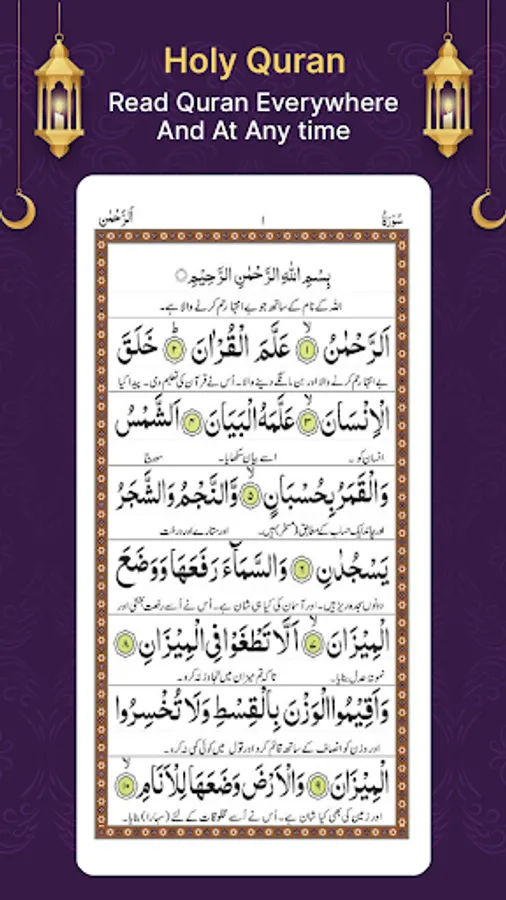 Holy Quran
Read Quran Everywhere
And At Any time
سُوْرَةُ ١ اَلرَّحْمٰن
بِسْمِ اللّٰهِ الرَّحْمٰنِ الرَّحِيْمِ
اللہ کے نام کے ساتھ جو بے انتہا رحم کرنے والا ہے۔
اَلرَّحْمٰنُ ۙ﴿۱﴾ عَلَّمَ الْقُرْاٰنَ ؕ﴿۲﴾ خَلَقَ
بے انتہا رحم کرنے والا اور بن مانگے دینے والا۔ اُس نے قرآن کی تعلیم دی۔ پیدا کیا
الْاِنْسَانَ ۙ﴿۳﴾ عَلَّمَهُ الْبَيَانَ ﴿۴﴾ اَلشَّمْسُ
انسان کو۔ اسے بیان سکھایا۔ سورج
وَالْقَمَرُ بِحُسْبَانٍ ۙ﴿۵﴾ وَّالنَّجْمُ وَالشَّجَرُ
اور چاند ایک حساب کے مطابق (مسخر) ہیں۔ اور ستارے اور درخت
يَسْجُدٰنِ ﴿۶﴾ وَالسَّمَآءَ رَفَعَهَا وَوَضَعَ
دونوں سجدہ ریز ہیں۔ اور آسمان کی کیا ہی شان ہے۔ اُس نے اُسے رفعت بخشی اور
الْمِيْزَانَ ۙ﴿۷﴾ اَلَّا تَطْغَوْا فِى الْمِيْزَانِ ﴿۹﴾
نمونۂ عدل بنایا۔ تاکہ تم میزان میں تجاوز نہ کرو۔
وَاَقِيْمُوا الْوَزْنَ بِالْقِسْطِ وَلَا تُخْسِرُوا
اور وزن کو انصاف کے ساتھ قائم کرو اور تول میں کوئی کمی نہ کرو۔
الْمِيْزَانَ ﴿۹﴾ وَالْاَرْضَ وَضَعَهَا لِلْاَنَامِ ۙ﴿۱۰﴾
اور زمین کی بھی کیا شان ہے۔ اُس نے اُسے مخلوقات کے لئے (سہارا) بنایا۔